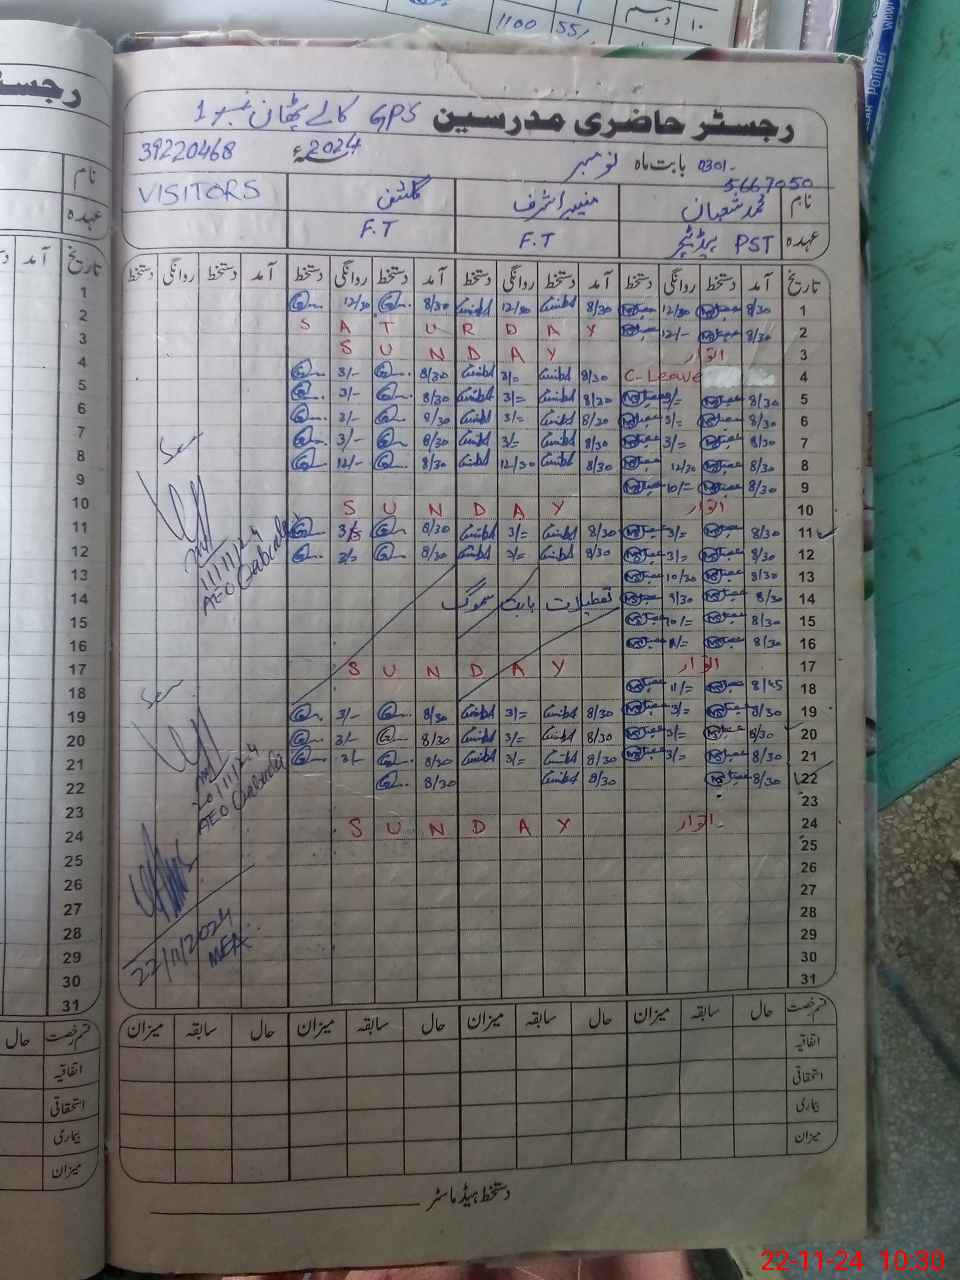 رجسٹر حاضری مدرسین GPS کالے پٹھان نمبر 1
بابت ماہ نومبر 2024ء 39220468
0301-5667050
نام محمد شعبان منیبہ اشرف گلشن VISITORS
عہدہ PST ہیڈ ٹیچر F.T F.T
تاریخ آمد دستخط روانگی دستخط آمد دستخط روانگی دستخط آمد دستخط روانگی دستخط آمد دستخط روانگی دستخط
1 8/30 12/30 8/30 12/30 8/30 12/30
2 8/30 12/- SATURDAY
3 اتوار SUNDAY
4 C-Leave 8/30 3/= 8/30 3/-
5 8/30 3/= 8/30 3/= 8/30 3/-
6 8/30 3/= 8/30 3/= 8/30 3/-
7 8/30 3/= 8/30 3/= 8/30 3/-
8 8/30 12/30 8/30 12/30 8/30 12/-
9 8/30 10/=
10 اتوار SUNDAY
11 8/30 3/= 8/30 3/= 8/30
12 8/30 3/= 8/30 3/= 8/30 3/=
13 8/30 10/30
14 8/30 9/30 تعطیلات بابت سموگ
15 8/30 10/=
16 8/30
17 اتوار SUNDAY
18 8/45 11/=
19 8/30 3/= 8/30 3/= 8/30 3/-
20 8/30 3/= 8/30 3/= 8/30 3/-
21 8/30 3/= 8/30 3/= 8/30 3/-
22 8/30 8/30 8/30
23
24 اتوار SUNDAY
25
26
27
28
29
30
31
Seen
11/11/24
AEO
Seen
20/11/24
AEO
22/11/2024
MEA
قسم رخصت حال سابقہ میزان حال سابقہ میزان حال سابقہ میزان حال سابقہ میزان
اتفاقیہ
استحقاقی
بیماری
میزان
دستخط ہیڈ ماسٹر
رجسٹر
نام
عہدہ
تاریخ آمد
1
2
3
4
5
6
7
8
9
10
11
12
13
14
15
16
17
18
19
20
21
22
23
24
25
26
27
28
29
30
31
قسم رخصت حال
اتفاقیہ
استحقاقی
بیماری
میزان
1100 55/ ۱۰
Pointer
22-11-24 10:30